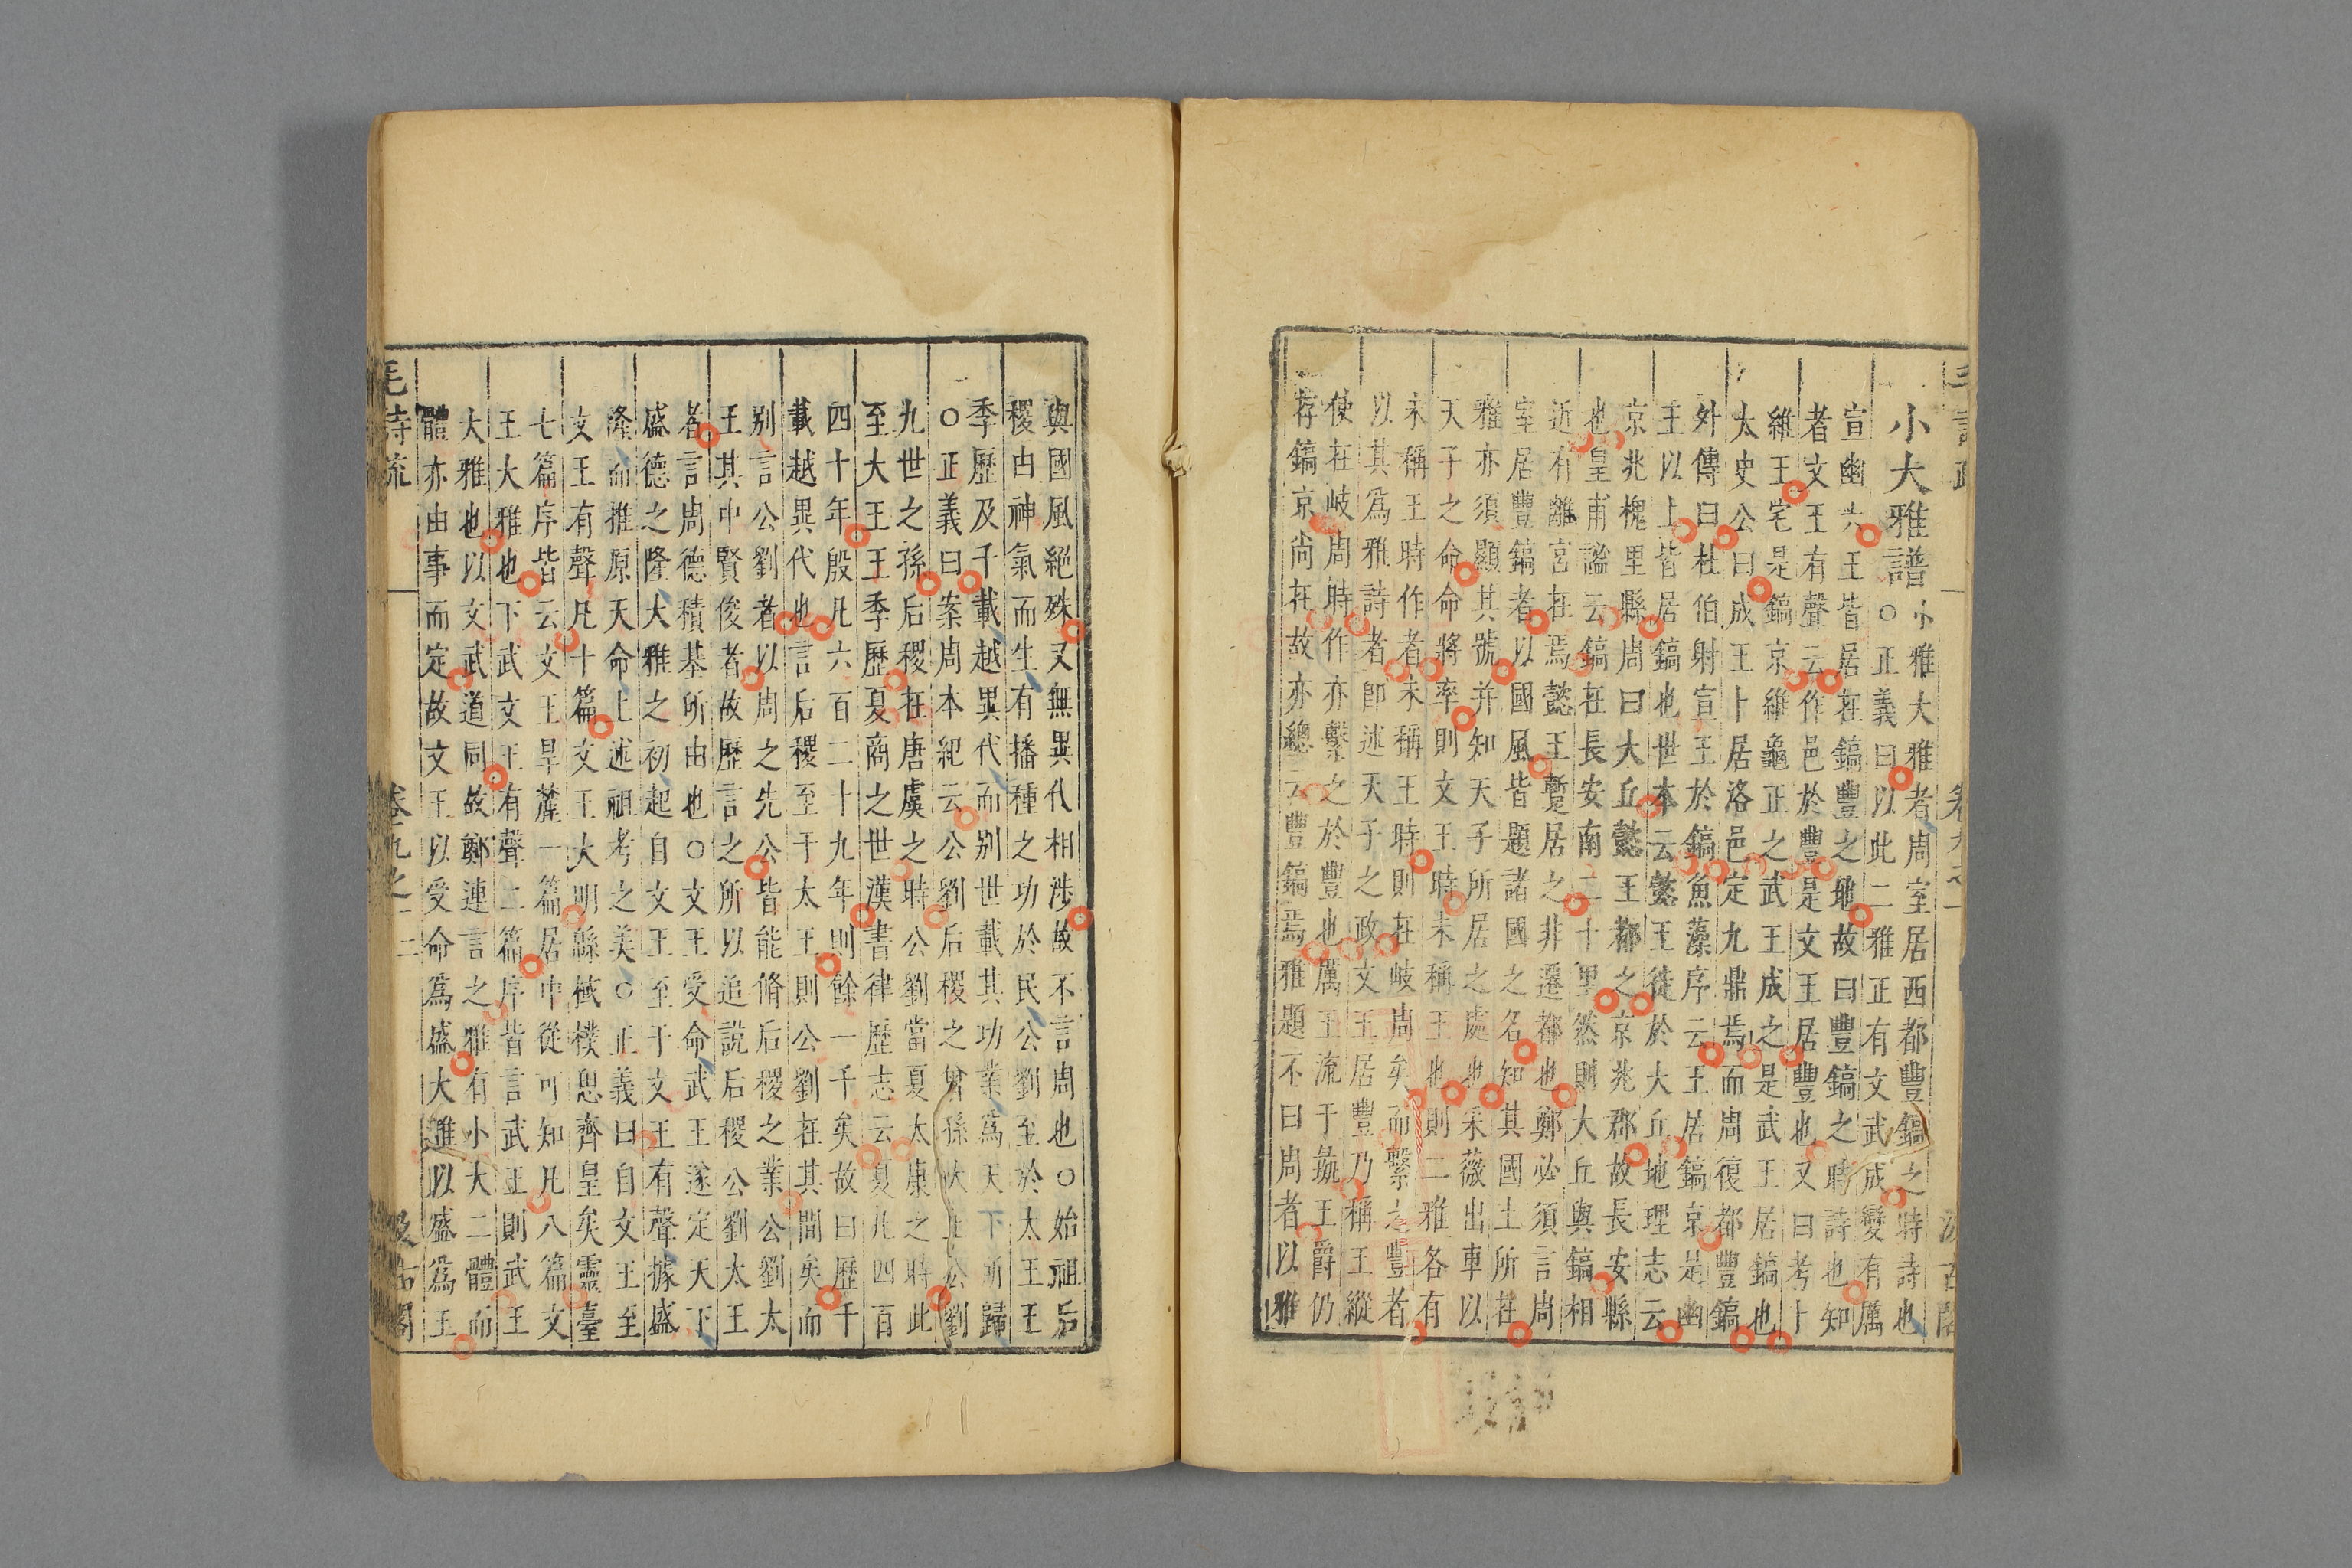 小大雅譜小雅大雅者周室居西都豐鎬之時詩也
○正義曰以此二雅正有文武成變有厲
宣幽六王皆居在鎬豐之地故曰豐鎬之時詩也知
者文王有聲云作邑於豐是文王居豐也又曰考卜
維王宅是鎬京維龜正之武王成之是武王居鎬也
太史公曰成王卜居洛邑定九鼎焉而周復都豐鎬
外傳曰杜伯射宣王於鎬魚藻序云王居鎬京是幽
王以上皆居鎬也世本云懿王徙於大丘地理志云
京兆槐里縣周曰大丘懿王都之京兆郡故長安縣
也皇甫謐云鎬在長安南二十里然則大丘與鎬相
近有離宮在焉懿王蹔居之非遷都也鄭必須言周
室居豐鎬者以國風皆題諸國之名知其國土所在
雅亦須顯其號并知天子所居之處也采薇出車以
天子之命命將率則文王時未稱王也則二雅各有
未稱王時作者未稱王時則在岐周矣而繫之豐者
以其爲雅詩者卽述天子之政文王居豐乃稱王縱
使在岐周時作亦繫之於豐也厲王流于彘王爵仍
存鎬京尚在故亦總云豐鎬焉雅題不曰周者以雅
與國風絕殊又無異代相涉故不言周也○始祖后
稷由神氣而生有播種之功於民公劉至於太王王
季歷及千載越異代而别世載其功業爲天下所歸
○正義曰案周本紀云公劉后稷之曾孫大王公劉
九世之孫后稷在唐虞之時公劉當夏太康之時此
至大王王季歷夏商之世漢書律歷志云夏凡四百
四十年殷凡六百二十九年則餘一千矣故曰歷千
載越異代也言后稷至于太王則公劉在其間矣而
别言公劉者以周之先公皆能脩后稷之業公劉太
王其中賢俊者故歷言之所以追說后稷公劉太王
者言周德積基所由也○文王受命武王遂定天下
盛德之隆大雅之初起自文王至于文王有聲據盛
隆而推原天命上述祖考之美○正義曰自文王至
文王有聲凡十篇文王大明緜棫樸思齊皇矣靈臺
七篇序皆云文王旱麓一篇居中從可知凡八篇文
王大雅也下武文王有聲二篇序皆言武王則武王
大雅也以文武道同故鄭連言之雅有小大二體而
體亦由事而定故文王以受命爲盛大進以盛爲王
毛詩疏 卷九之一 二 汲古閣